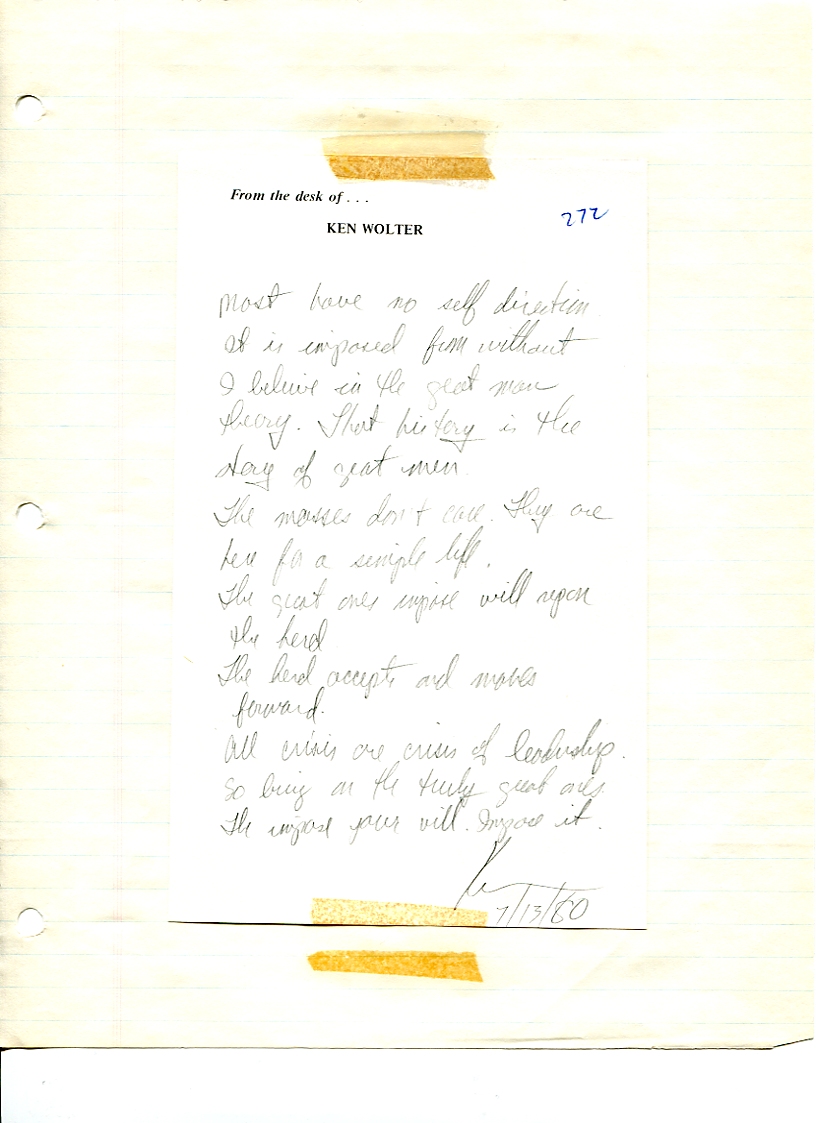 From the desk of . . .
KEN WOLTER
272
most have no self direction.
It is imposed from without
I believe in the great man
theory. That history is the
story of great men.
The masses don't care. They are
here for a simple life.
The great ones impose will upon
the herd
The herd accepts and moves
forward.
All crisis are crisis of leadership.
So bring on the truly great ones.
The impose your will. Impose it.
Ken
7/13/80